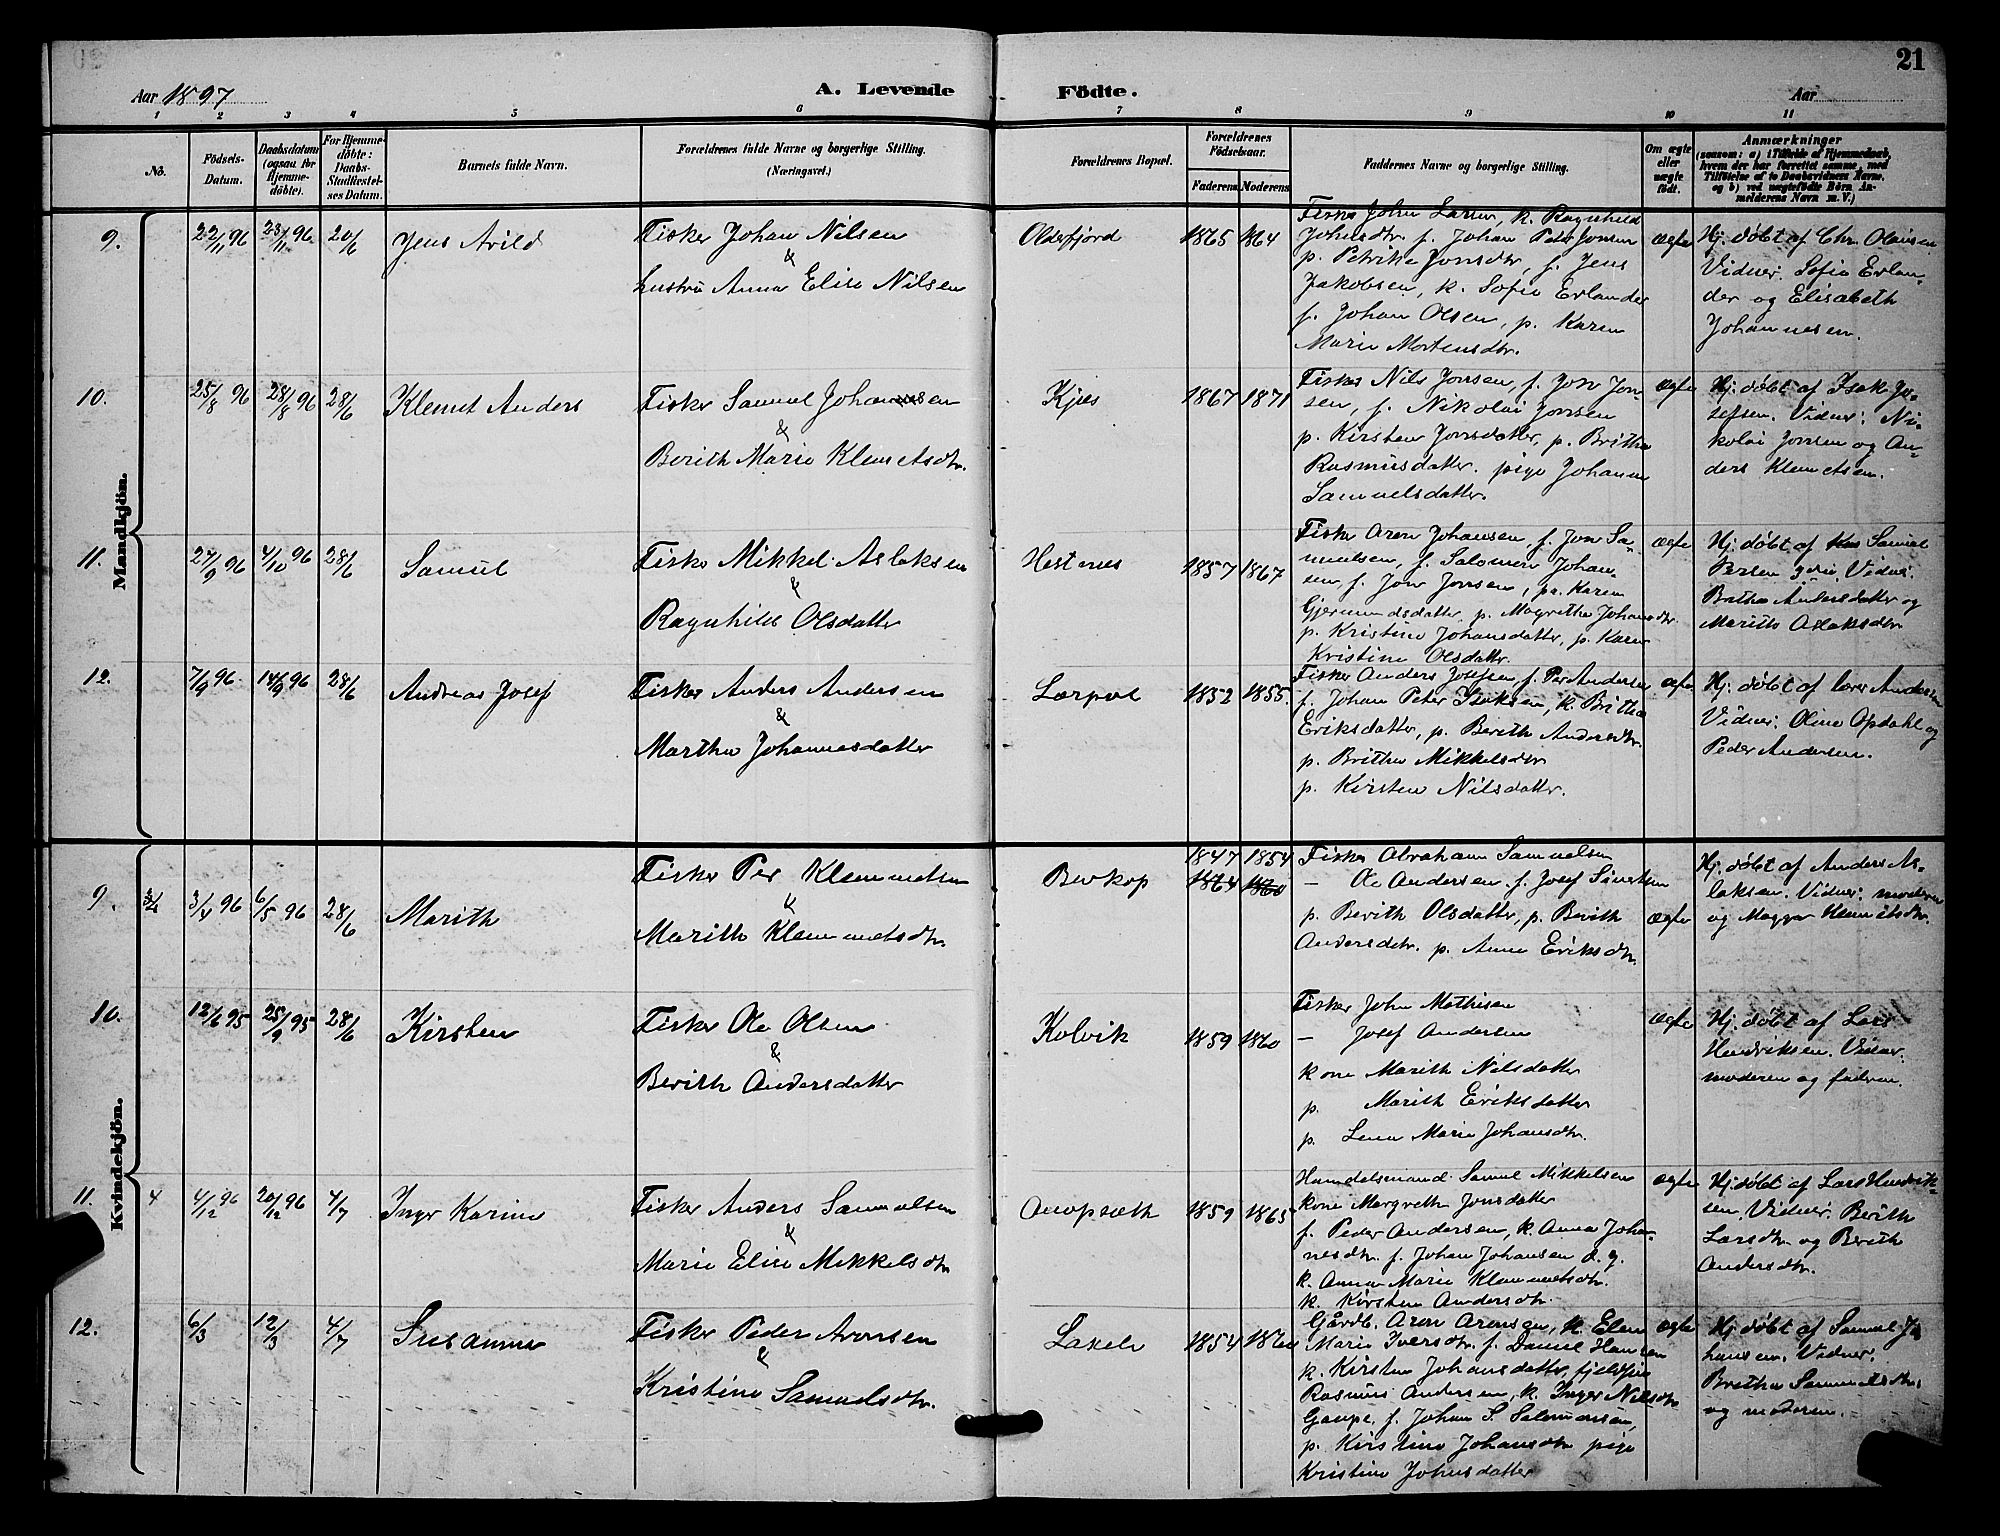 21
Aar 1897
A. Levende Födte.
Aar
1 2 3 4 5 6 7 8 9 10 11
No.
Födsels-Datum.
Daabsdatum (ogsaa for Hjemmedöbte).
For Hjemmedöbte: Daabs-Stadfæstelses Datum.
Barnets fulde Navn.
Forældrenes fulde Navne og borgerlige Stilling.
(Næringsvei.)
Forældrenes Bopæl.
Forældrenes Födselsaar.
Faderens Moderens
Faddernes Navne og borgerlige Stilling.
Om ægte eller uægte födt.
Anmærkninger
(saasom: a) i Tilfælde af Hjemmedaab, hvem der har forrettet samme, med Tilföielse af to Daabsvidners Navne, og b) ved uægtefödte Börn Anmelderens Navn m. V.)
Mandkjön.
9. 22/11 96 23/11 96 20/6
Jens Arild
Fisker Johan Nilsen
&
hustru Anna Elise Nilsen
Olderfjord
1865 1864
Fisker John Larsen, k. Ragnhild
Johnsdtr. f. Johan Peter Jonsen
p. Petrike Jonsdtr, f. Jens
Jakobsen, k. Sofie Erlander
f. Johan Olsen, p. Karen
Marie Mortensdtr.
ægte
Hj. døbt af Chr. Olaisen
Vidner: Sofie Erlan-
der og Elisabeth
Johannesen.
10. 25/8 96 28/8 96 28/6
Klemet Anders
Fisker Samuel Johansen
&
Berith Marie Klemetsdtr.
Kjæs
1867 1871
Fisker Nils Jonsen, f. Jon Jon-
sen, f. Nikolai Jonsen
p. Kirsten Jonsdatter, p. Britha
Rasmusdatter. pige Johanne
Samuelsdatter.
ægte
Hj. døbt af Isak Jo-
sefsen. Vidner: Ni-
kolai Jonsen og An-
ders Klemetsen.
11. 27/9 96 4/10 96 28/6
Samuel
Fisker Mikkel Aslaksen
&
Ragnhild Olsdatter
Hestnes
1857 1867
Fisker Aron Johansen, f. Jon Sa-
muelsen, f. Salomon Johan-
sen, f. Jon Jonsen, p. Karen
Gjermundsdatter, p. Magretha Johansdtr.
p. Kristine Johansdatter, p. Karen
Kristine Olsdatter.
ægte
Hj. døbt af Samuel
Persen Vidner:
Britha Andersdatter og
Marith Aslaksdtr
12. 7/9 96 14/9 96 28/6
Andreas Josef
Fisker Anders Andersen
&
Martha Johannesdatter
Lærpol
1852 1855.
Fisker Anders Josefsen, f. Per Andersen
f. Johan Peter Isaksen, k. Britha
Eriksdatter, p. Berith Andersdtr.
p. Britha Mikkelsdtr
p. Kirsten Nilsdatter.
ægte
Hj. døbt af lærer Andersen
Vidner: Oline Opdahl og
Peder Andersen.
Kvindekjön.
9. 3/4 96 6/5 96 28/6
Marith
Fisker Per Klemmetsen
&
Marith Klemmetsdtr.
Bevkop
1847 1854
1864 1860
Fisker Abraham Samuelsen
— Ole Andersen. f. Josef Sivertsen
p. Berith Olsdatter, p. Berith
Andersdtr. p. Anne Eriksdtr.
ægte
Hj. døbt af Anders As-
laksen. Vidner: moderen
og Magga Klemetsdtr.
10. 12/6 95 25/9 95 28/6
Kirsten
Fisker Ole Olsen
&
Berith Andersdatter
Kolvik
1859 1860
Fisker John Mathisen
— Josef Andersen
kone Marith Nilsdatter
p. Marith Eriksdatter
p. Lena Marie Johansdtr.
ægte
Hj. døbt af Lars
Hendriksen. Vidner:
moderen og faderen.
11. 4 4/12 96 20/12 96 4/7
Inger Karine
Fisker Anders Samuelsen
&
Marie Elise Mikkelsdtr
Avopseth
1859 1865
Handelsmand Samuel Mikkelsen
kone Margreth Jonsdatter
f. Peder Andersen, k. Anna Joha-
nesdtr. f. Johan Johansen d. y.
k. Anna Marie Klemmetsdtr.
k. Kirsten Andersdtr.
ægte
Hj. døbt af Lars Hendrik-
sen. Vidner: Berith
Larsdtr og Berith
Andersdtr.
12. 6/3 12/3 4/7
Susanna
Fisker Peder Aronsen
&
Kristine Samuelsdtr.
Lakelv
1854 1860
Gårdb. Aron Aronsen, k. Elen
Marie Iversdtr. f. Daniel Hansen
k. Kirsten Johansdatter, fjeldfin
Rasmus Andersen, k. Inger Nilsdtr
Gaupe, f. Johan S. Salomonsen,
p. Kirstine Johansdtr pige
Kristine Johnsdatter
ægte
Hj. døbt af Samuel Jo-
hansen. Vidner:
Britha Samuelsdtr.
og moderen.